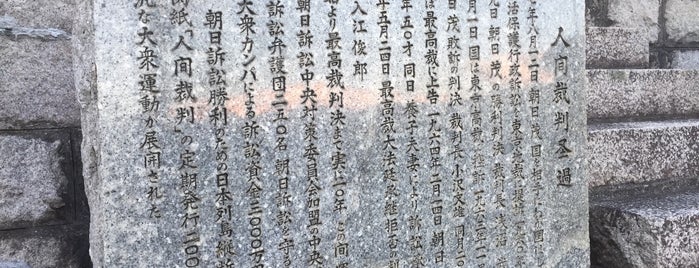 人间裁判圣過
年八月十二日朝日茂国を相手にわが国
活保護行政訴訟を東京地裁に提訴一九六〇年
九日 朝日茂の勝利判決 裁判長
月一日 国は東京高裁に控訴 一九六三年一一
日茂敗訴の判決 裁判長小沢文雄 同月二〇
は最高裁に上告 一九六四年二月一四日 朝日
年五〇才 同日 養子夫妻により訴訟承
年五月二四日最高裁大法廷承継拒否の判
入江俊郎
より最高裁判決まで実に一〇年 この間
朝日訴訟中央対策委員会加盟の中央
訴訟弁護団二五〇名 朝日訴訟を守る
大衆カンパによる訴訟資金二〇〇〇万円
朝日訴訟勝利のための日本列島縦断
関紙「人间裁判」の定期発行二〇〇
汎な大衆運動が展開された